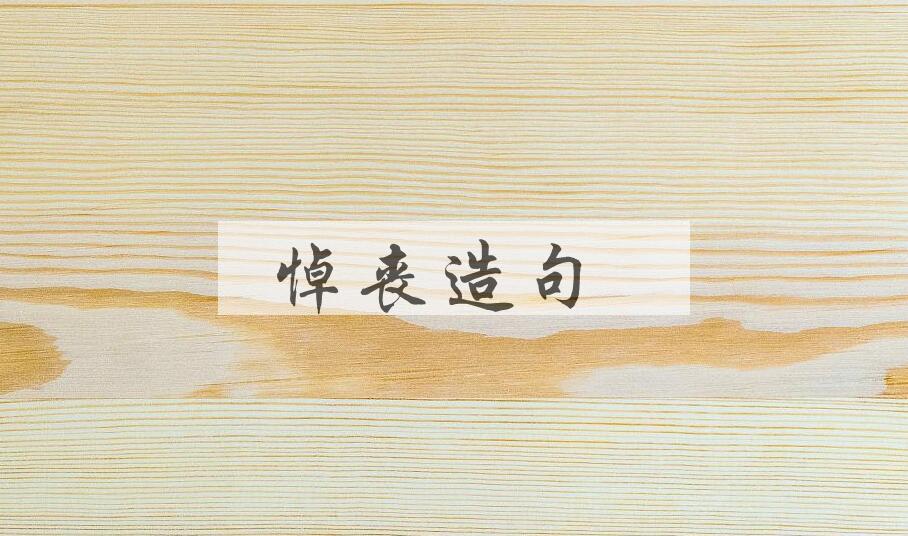 悼丧造句